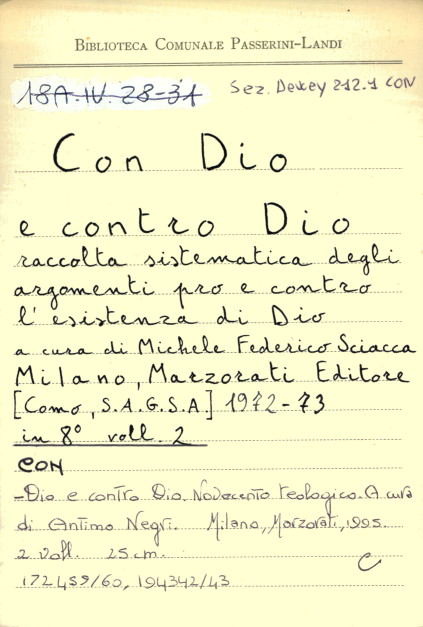 BIBLIOTECA COMUNALE PASSERINI-LANDI
18A.IV.28-31
Sez. Dewey 212.1 CON
Con Dio
e contro Dio
raccolta sistematica degli
argomenti pro e contro
l'esistenza di Dio
a cura di Michele Federico Sciacca
Milano, Marzorati Editore
[Como, S.A.G.S.A.] 1972-73
in 8° voll. 2
CON
-Dio e contro Dio. Novecento teologico. A cura
di Antimo Negri. Milano, Marzorati, 1995.
2 voll. 25 cm.
C
172459/60, 194342/43